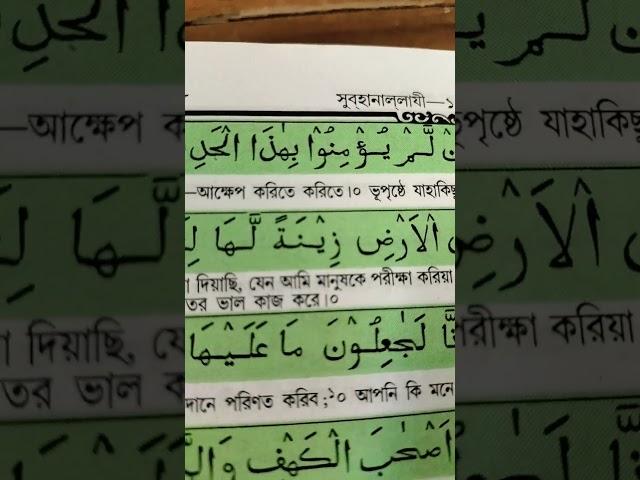 সুব্‌হানাল্লাযী—১
لَّمْ يُؤْمِنُوْا بِهٰذَا
—আক্ষেপ করিতে করিতে।০ ভূপৃষ্ঠে যাহাকিছু
الْاَرْضِ زِيْنَةً لَّهَا
দিয়াছি, যেন আমি মানুষকে পরীক্ষা করিয়া
তর ভাল কাজ করে।০
لَجٰعِلُوْنَ مَا عَلَيْهَا
দানে পরিণত করিব;১০ আপনি কি মনে
اَصْحٰبَ الْكَهْفِ